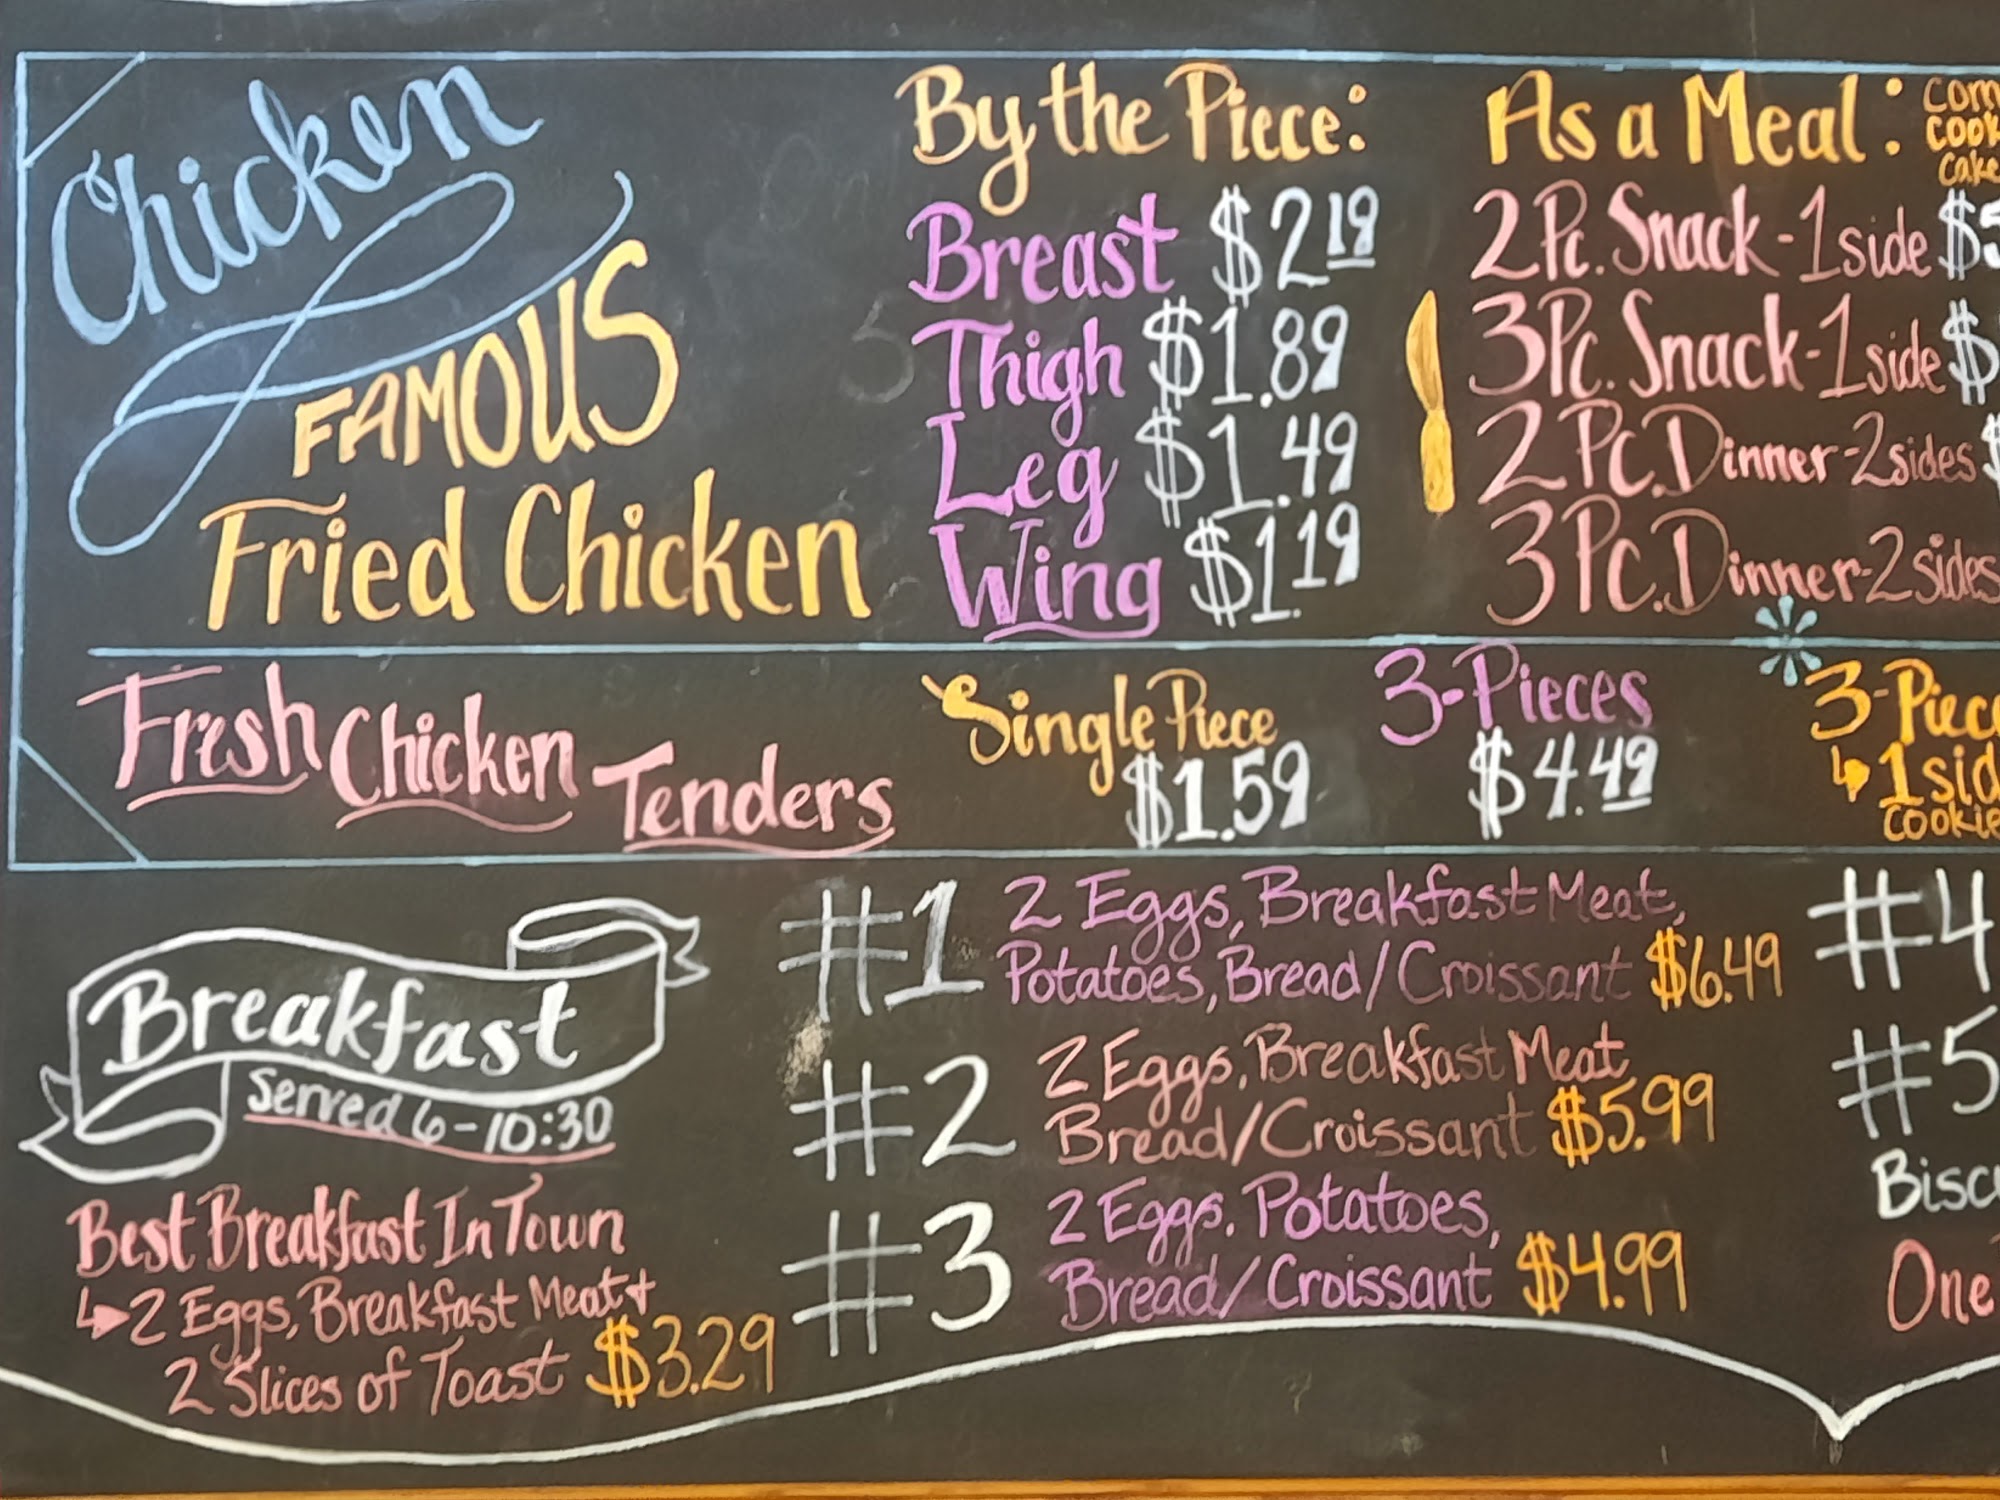 Chicken
FAMOUS
Fried Chicken
By the Piece:
Breast $2.19
Thigh $1.89
Leg $1.49
Wing $1.19
As a Meal:
2 Pc. Snack - 1 side $5
3 Pc. Snack - 1 side $
2 Pc. Dinner - 2 sides $
3 Pc. Dinner - 2 sides
Fresh Chicken Tenders
Single Piece
$1.59
3-Pieces
$4.49
3-Piece
1 sid
cookie
Breakfast
Served 6-10:30
Best Breakfast In Town
2 Eggs, Breakfast Meat +
2 Slices of Toast $3.29
#1 2 Eggs, Breakfast Meat,
Potatoes, Bread/Croissant $6.49
#2 2 Eggs, Breakfast Meat
Bread/Croissant $5.99
#3 2 Eggs, Potatoes,
Bread/Croissant $4.99
#4
#5
Bisc
One